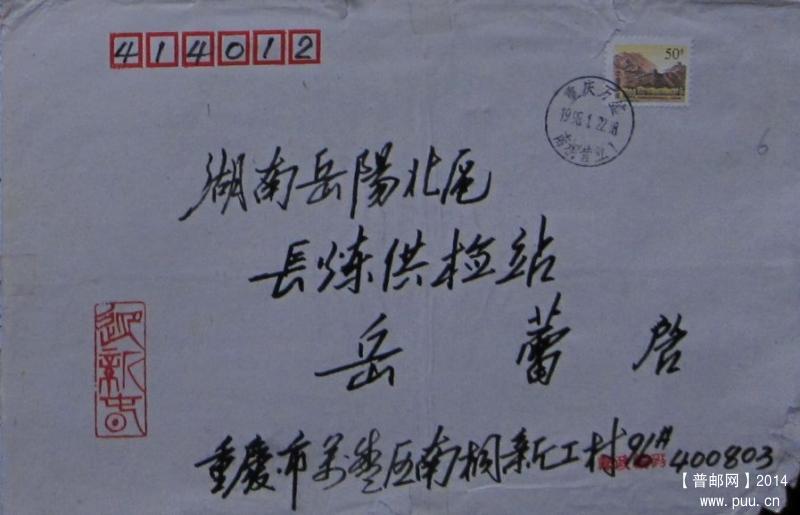 414012
50
重庆万盛
1998.1.22.18
湖南岳陽北尾
長煉供檢站
岳 蕾 啓
迎新春
重慶市万盛区南桐新工村96#
400803
【普邮网】2014
www.puu.cn